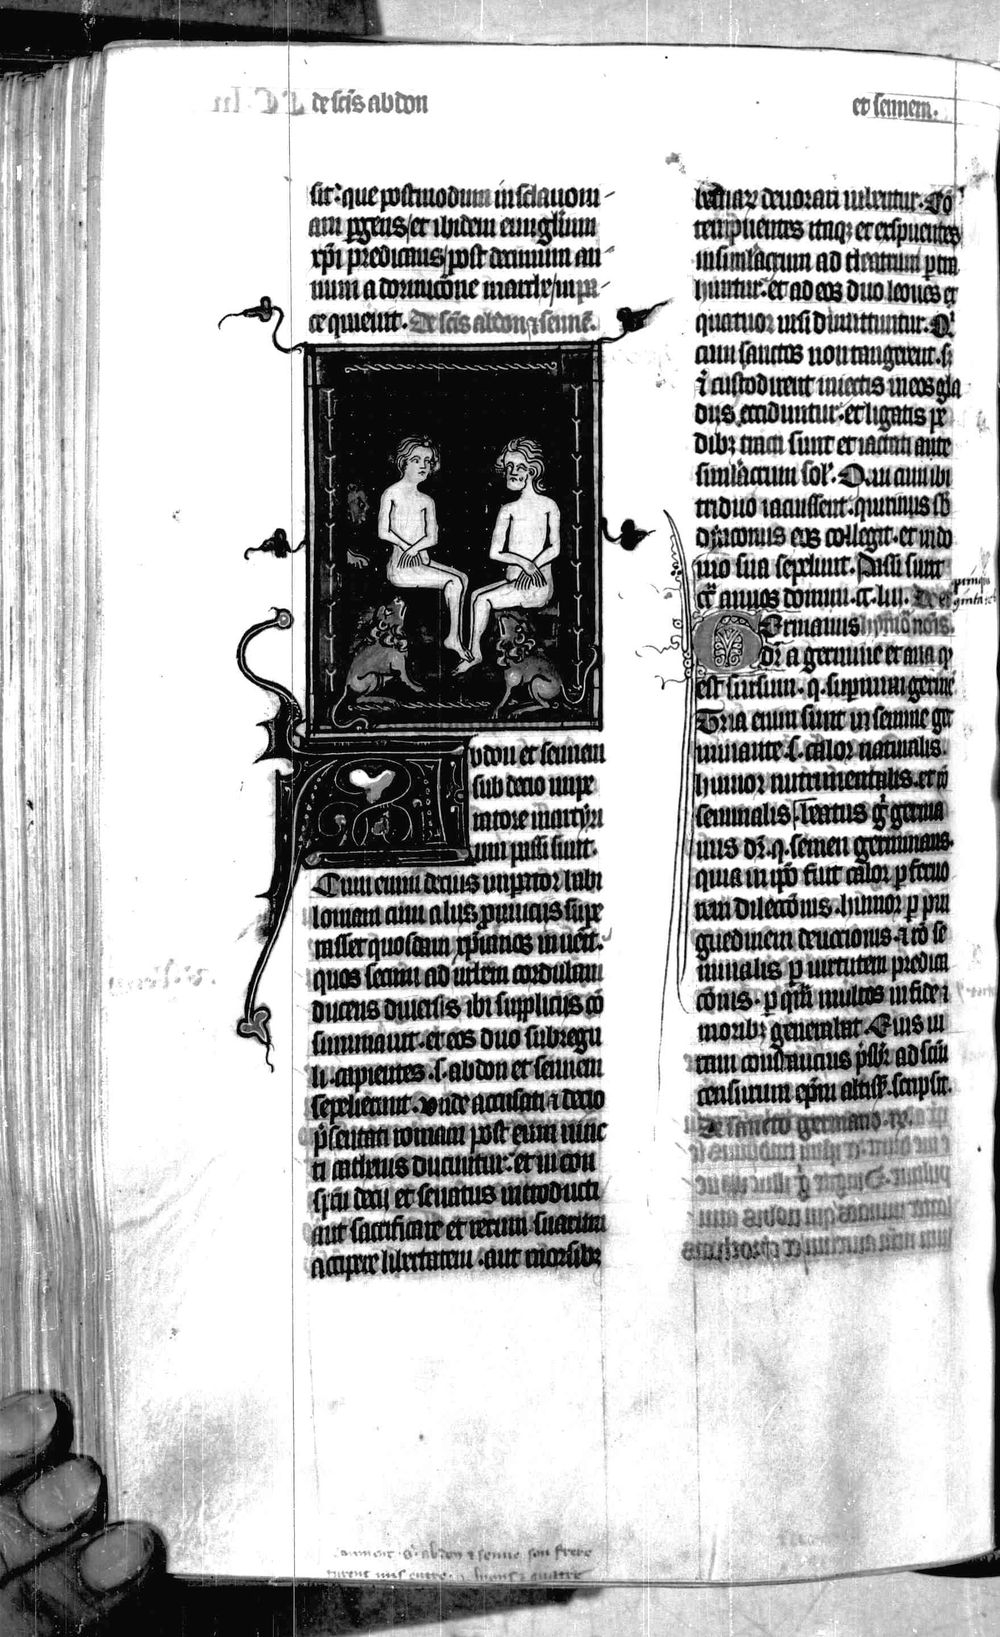 de scis abdon
et sennem.
sit: que postmodum in sclavoni-
am pergens/et ibidem euuglium
xpi predicans/post decimum an-
num a dormicone marthe/in pa-
ce quieuit. De scis abdon ⁊ senne.
bdon et sennem
sub decio impe
ratore martyri
um passi sunt.
Cum enim decius imperator babi
loniam cum aliis prouinciis supe
rasset quosdam xpianos inuenit.
quos secum ad urbem cordulam
ducens diuersis ibi suppliciis con
summauit. et eos duo subregu
li. capientes .s. abdon et sennem
sepelierunt. unde accusati ⁊ decio
presentati romam post eum iunc
ti cathenis ducuntur. et in con
spectu decij et senatus introducti
aut sacrificare et rerum suarum
accipere libertatem .aut morsibz
bestiarum deuorari iubentur. Con
tempnentes itaqz et exspuentes
in simulacrum ad theatrum per tra
huntur. et ad eos duo leones et
quatuor ursi dimittuntur. Qui
cum sanctos non tangerent. sz
custodirent iniectis in eos gla
diis occiduntur. et ligatis pe
dibz tracti sunt et iactati ante
simulacrum solis. Qui cum ibi
triduo iacuissent. quirinus sb
dyaconus eos collegit. et in do
mo sua sepeliuit. Passi sunt
circa annos domini .cc.liii.
Germanus
dr a germine et ana qd
est sursum .q. supernum germen
Tria enim sunt in semine ger
minante .s. calor naturalis.
humor nutrimentalis. et ro
seminalis. beatus g germa
nus dr .q. semen germinans.
quia in ipo fuit calor p feruo
rem dilecconis. humor p pin
guedinem deuocionis. ⁊ ro se
minalis p uirtutem predica
conis. p quam multos in fide ⁊
moribz generabat. Eius ui
tam constancius psbr ad scm
censurium epm altisi. scripsit.
De sancto germano